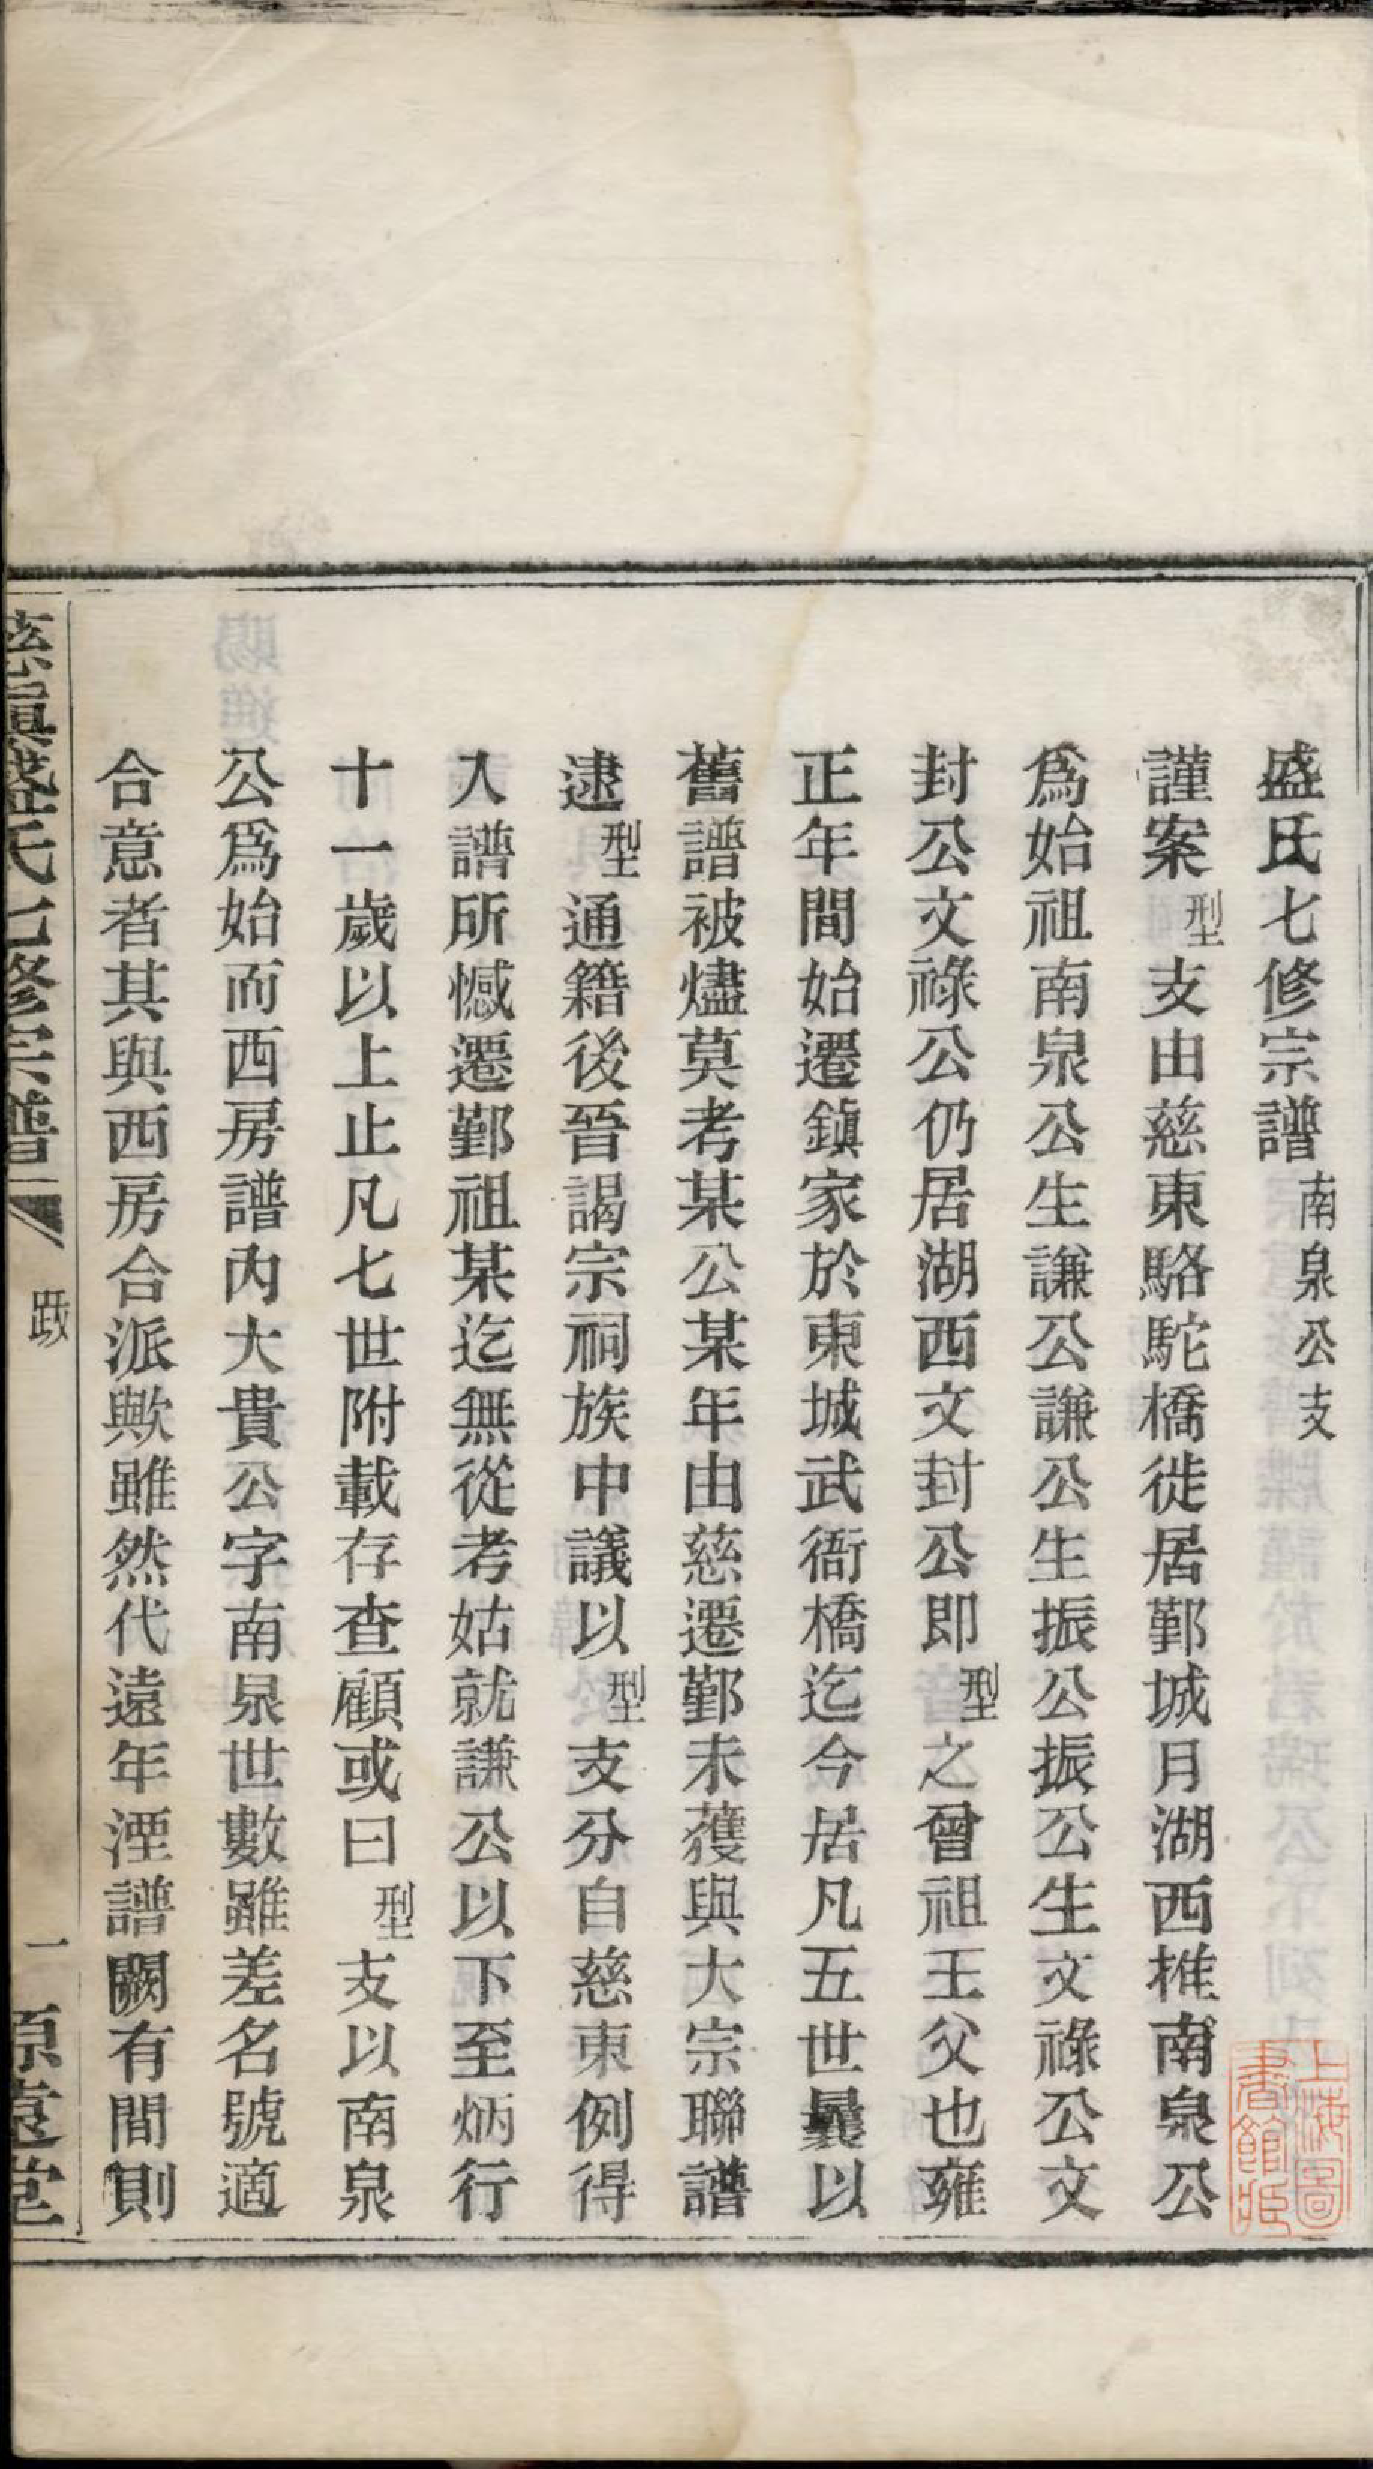 盛氏七修宗譜南泉公支
謹案型支由慈東駱駝橋徙居鄞城月湖西推南泉公
爲始祖南泉公生謙公謙公生振公振公生文祿公文
封公文祿公仍居湖西文封公即型之曾祖王父也雍
正年間始遷鎮家於東城武衙橋迄今居凡五世曩以
舊譜被燼莫考某公某年由慈遷鄞未獲與大宗聯譜
逮型通籍後晉謁宗祠族中議以型支分自慈東例得
入譜所憾遷鄞祖某迄無從考姑就謙公以下至炳行
十一歲以上止凡七世附載存查顧或曰型支以南泉
公爲始而西房譜內大貴公字南泉世數雖差名號適
合意者其與西房合派歟雖然代遠年湮譜闕有間則
慈鎮盛氏七修宗譜 跋 一 原遠堂
上海圖書館藏